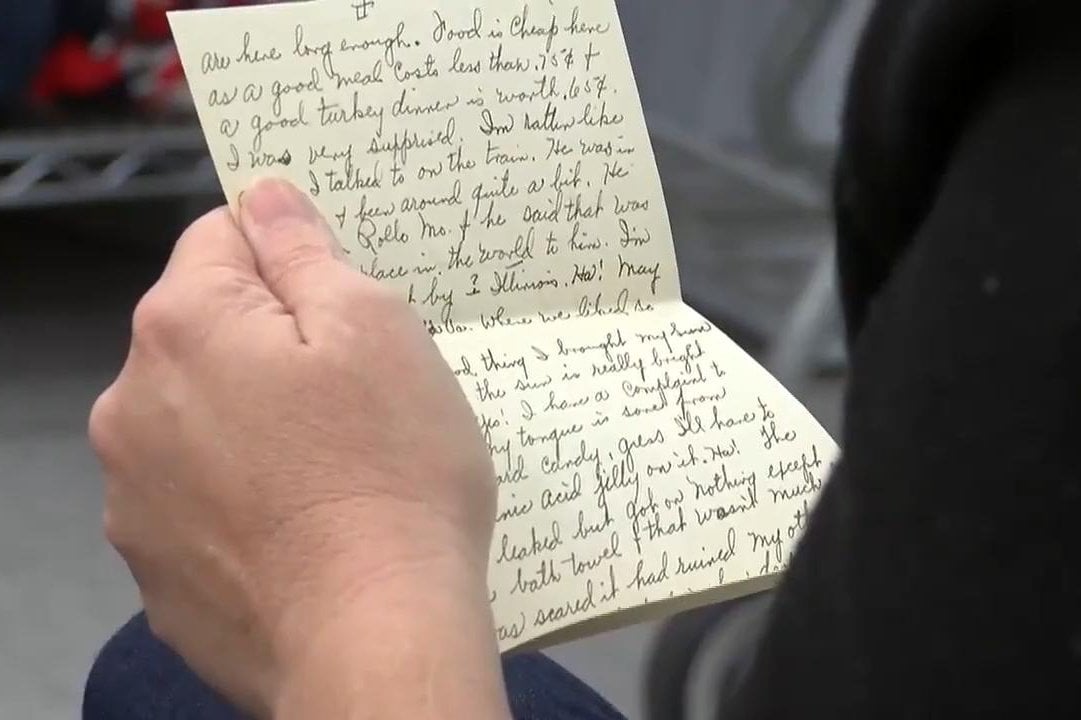 II
are here long enough. Food is cheap here
as a good meal costs less than .75¢ +
a good turkey dinner is worth .65¢.
I was very supprised. I'm rather like
I talked to on the train. He was in
+ been around quite a bit. He
Rollo Mo. + he said that was
place in the world to him. I'm
by Illinois. Ha! May
Where we liked so
thing I brought my sun
the sun is really bright
yes! I have a complaint to
my tongue is sore from
candy, guess I'll have to
acid jelly on it. Ha! The
leaked but got on nothing except
bath towel + that wasn't much
was scared it had ruined my